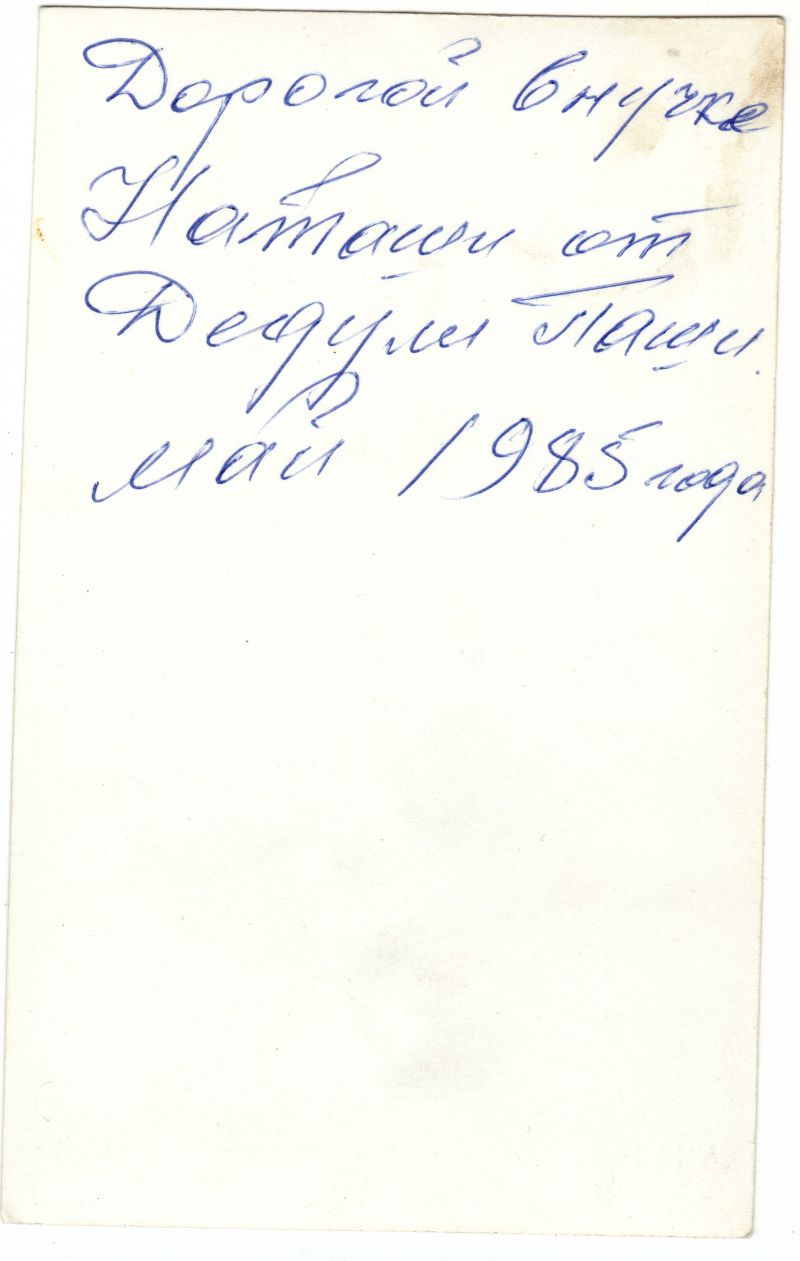 Дорогой внучке
Наташи от
Дедули Паши.
май 1985 года